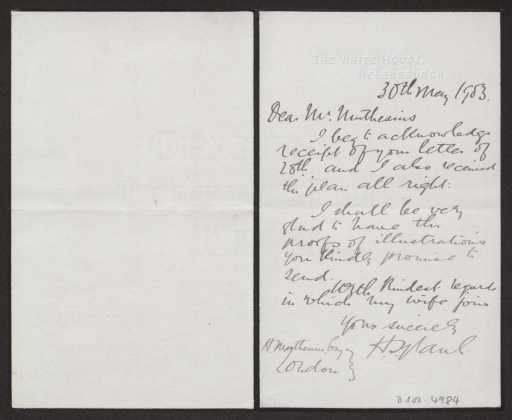 THE WHITE HOUSE,
HELENSBURGH.
30th May 1903.
Dear Mr. Muthesius
I beg to acknowledge
receipt of your letter of
28th and I also received
the plan all right.
I shall be very
glad to have the
proofs of illustrations
you kindly promise to
send.
With kindest regards
in which my wife joins
Yours sincerely
H. Muthesius Esq
London
D 102-4984